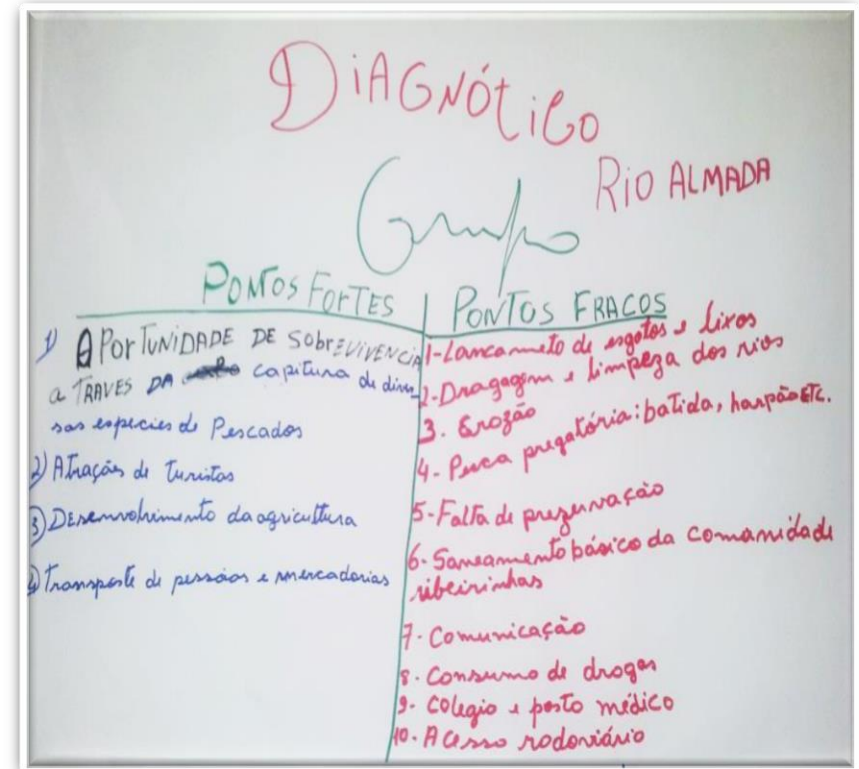 DiAGNÓtiCo
RIO ALMADA
Grupo
PONTOS FORTES
1) OPORTUNIDADE DE SobrEVIVENCIA
a TRAVES DA capitura de diver-
sas especies de Pescados
2) Atrações de Turistas
3) Desenvolvimento da agricultura
4) Transporte de pessoas e mercadorias
PONTOS FRACOS
1-Lancamneto de esgotos e lixos
2-Dragagem e limpeza dos rios
3. Erozão
4- Pesca pregatória: batida, harpão ETC.
5-Falta de prezervação
6. Saneamento básico da comanidade
ribeirinhas
7- Comunicação
8. Consumo de drogas
9- Colegio e posto médico
10- Acesso rodoviário